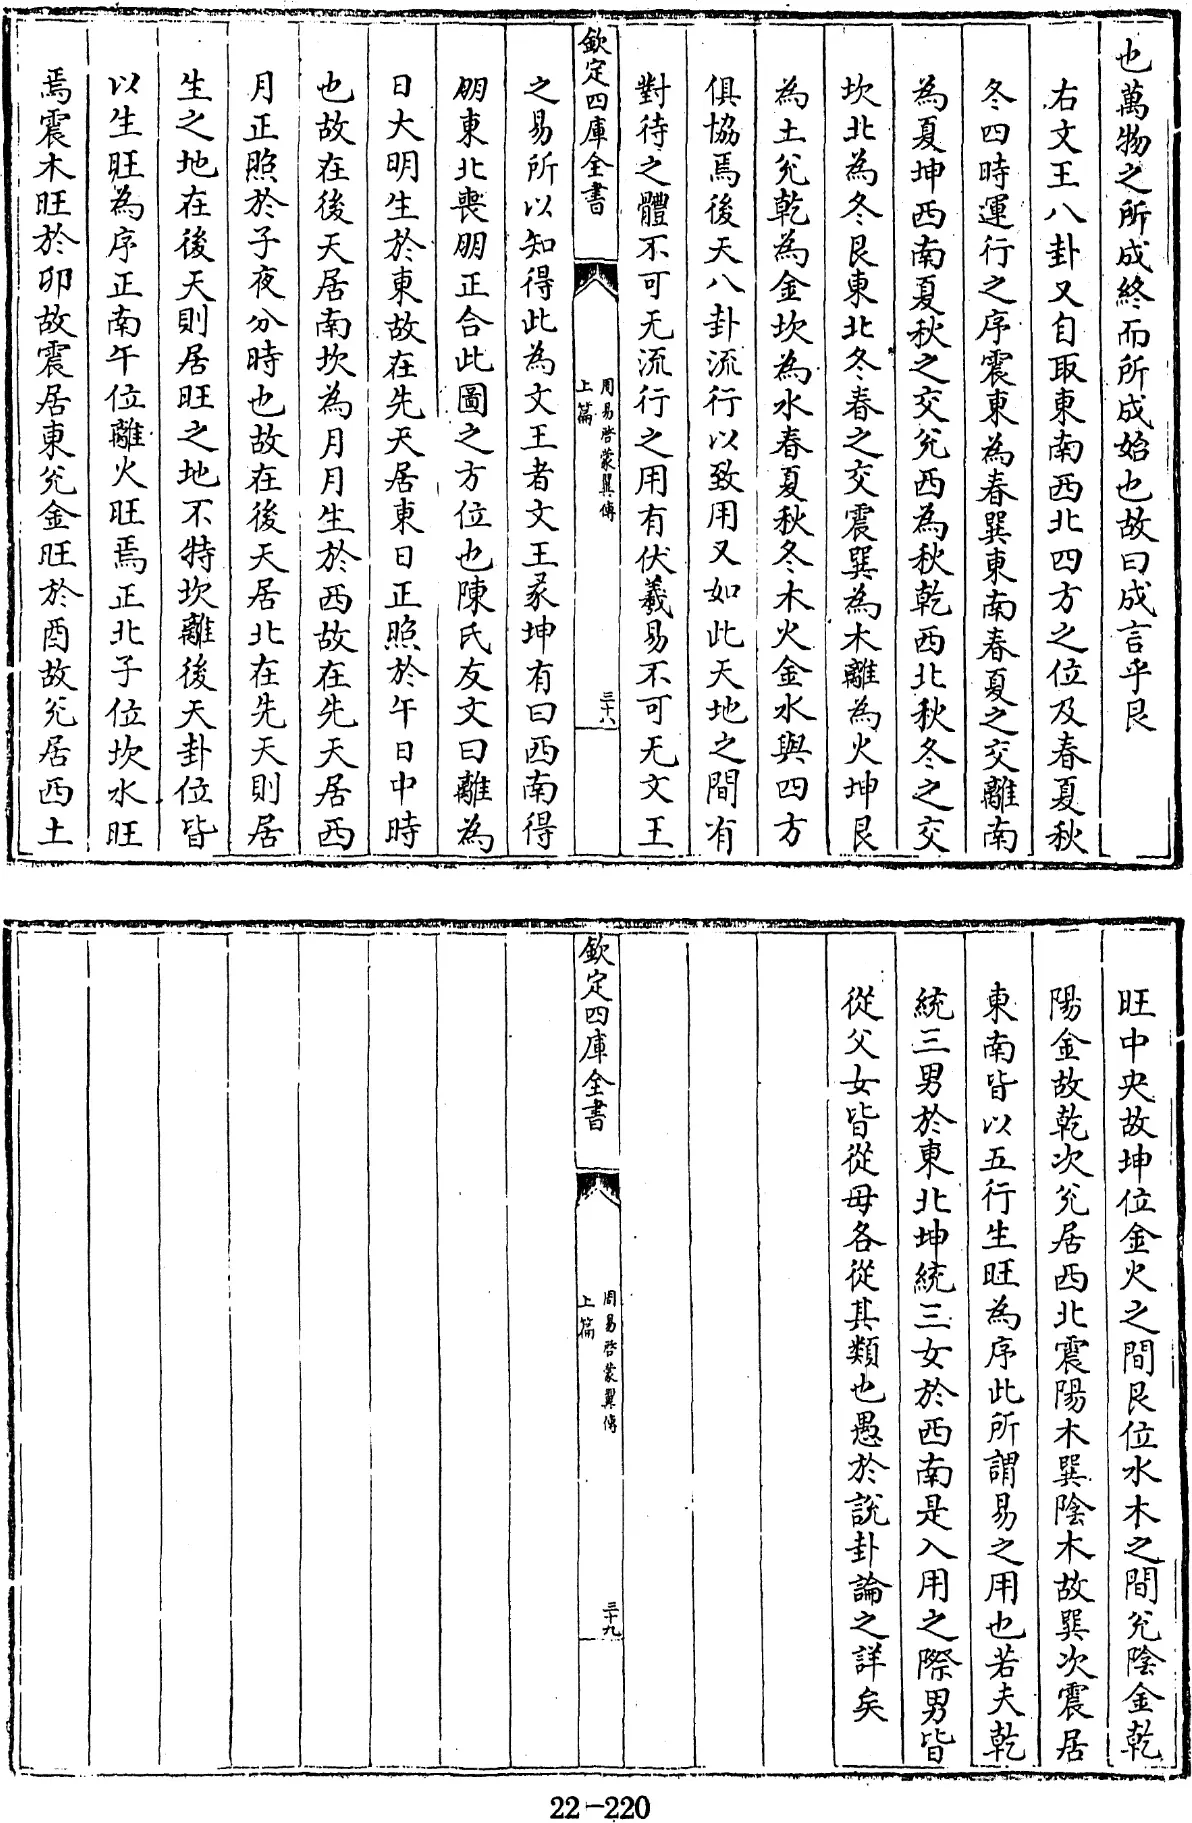 也萬物之所成終而所成始也故曰成言乎艮
右文王八卦又自取東南西北四方之位及春夏秋
冬四時運行之序震東為春巽東南春夏之交離南
為夏坤西南夏秋之交兊西為秋乾西北秋冬之交
坎北為冬艮東北冬春之交震巽為木離為火坤艮
為土兊乾為金坎為水春夏秋冬木火金水與四方
俱協焉後天八卦流行以致用又如此天地之間有
對待之體不可无流行之用有伏羲易不可无文王
欽定四庫全書
周易啓蒙翼傳
上篇
三十八
之易所以知得此為文王者文王彖坤有曰西南得
朋東北喪朋正合此圖之方位也陳氏友文曰離為
日大明生於東故在先天居東日正照於午日中時
也故在後天居南坎為月月生於西故在先天居西
月正照於子夜分時也故在後天居北在先天則居
生之地在後天則居旺之地不特坎離後天卦位皆
以生旺為序正南午位離火旺焉正北子位坎水旺
焉震木旺於卯故震居東兊金旺於酉故兊居西土
旺中央故坤位金火之間艮位水木之間兊陰金乾
陽金故乾次兊居西北震陽木巽陰木故巽次震居
東南皆以五行生旺為序此所謂易之用也若夫乾
統三男於東北坤統三女於西南是入用之際男皆
從父女皆從母各從其類也愚於說卦論之詳矣
欽定四庫全書
周易啓蒙翼傳
上篇
三十九
22-220